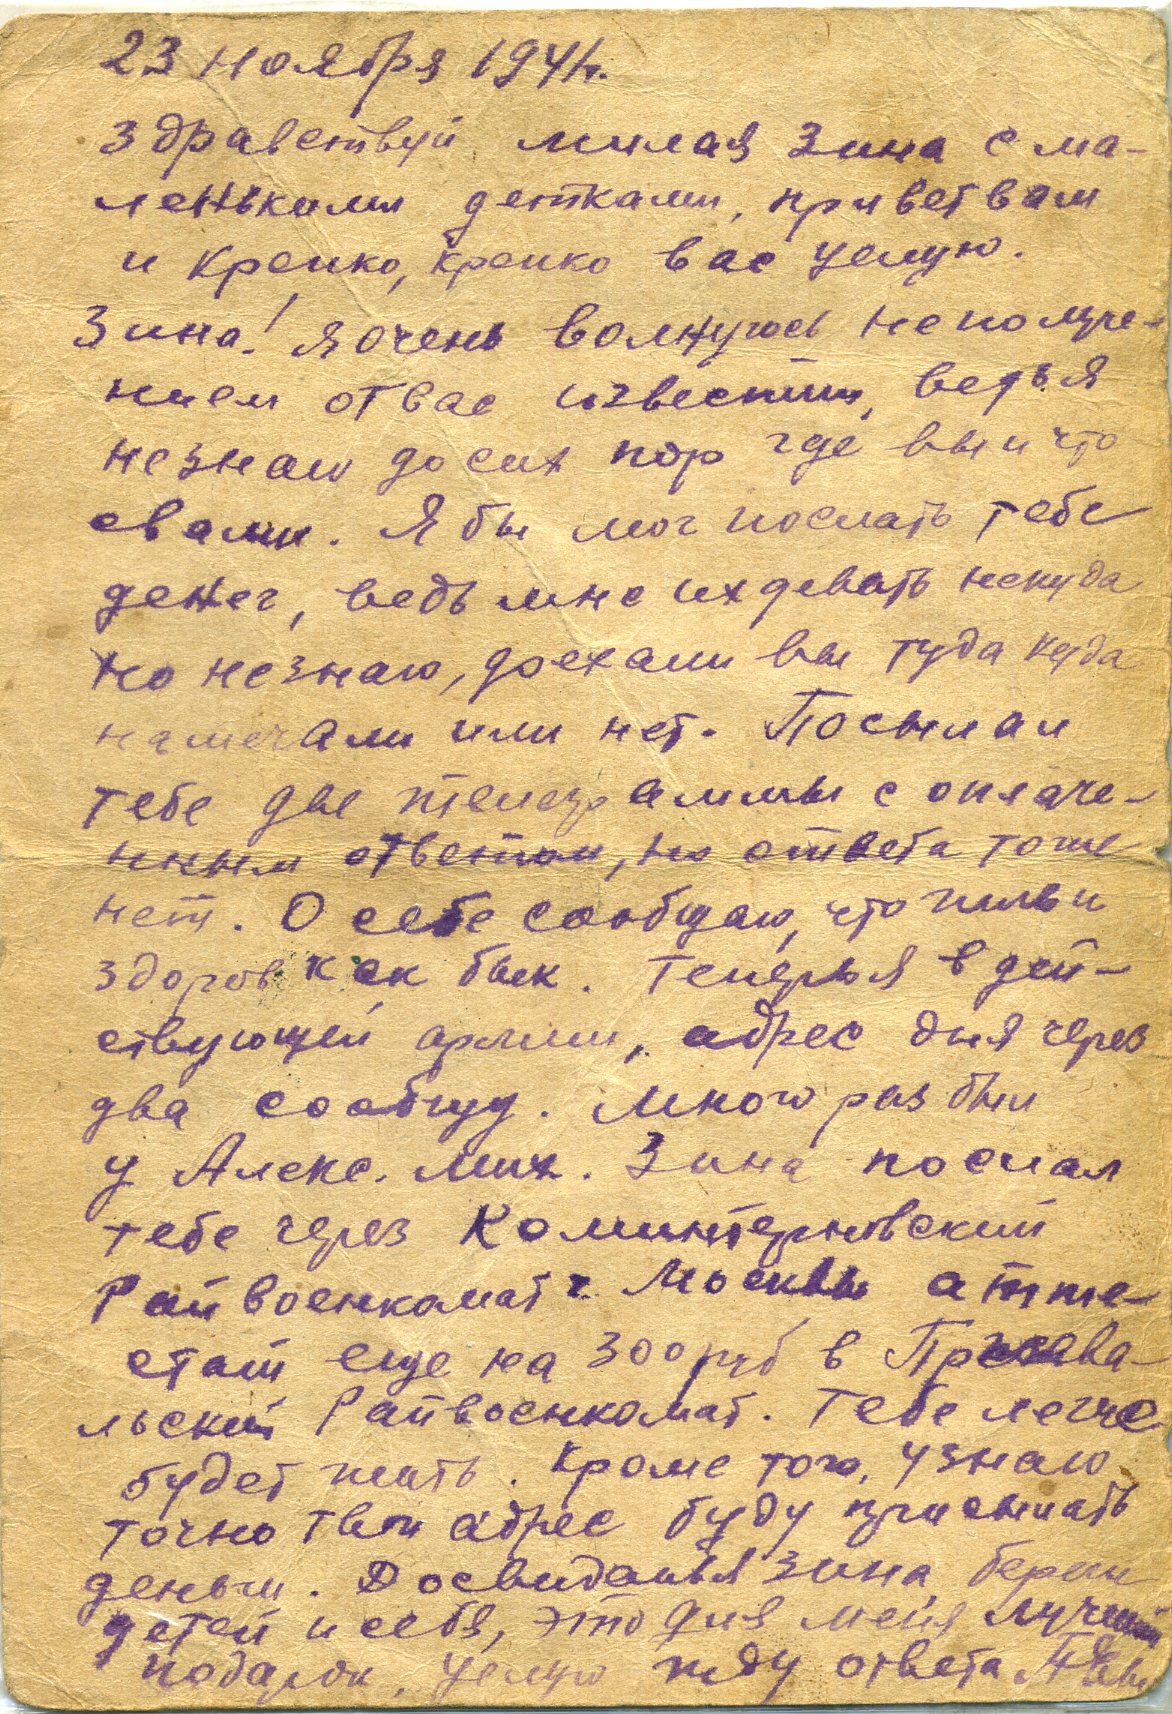 23 ноября 1941г.
Здравствуй милая Зина с ма-
ленькими детками, привет вам
и крепко, крепко вас целую.
Зина! Я очень волнуюсь неполуче-
нием от вас известии, ведь я
незнаю досих пор где вы и что
свами. Я бы мог послать тебе
денег, ведь мне их девать некуда
но незнаю, доехали вы туда куда
намечали или нет. Посылал
тебе две телеграммы с оплаче-
нным ответом, но ответа тоже
нет. О себе сообщаю, что жив и
здоров как бык. Теперь я в дей-
ствующей армии, адрес дня через
два сообщу. Много раз был
у Алекс. Мих. Зина послал
тебе через Коминтерновский
Райвоенкомат г. Москвы атте-
стат еще на 300 руб в
льский Райвоенкомат. Тебе легче
будет жить. Кроме того, узнаю
точно твой адрес буду присылать
деньги. Досвиданья Зина, береги
детей и себя, это для меня лучший
подарок, целую жду ответа